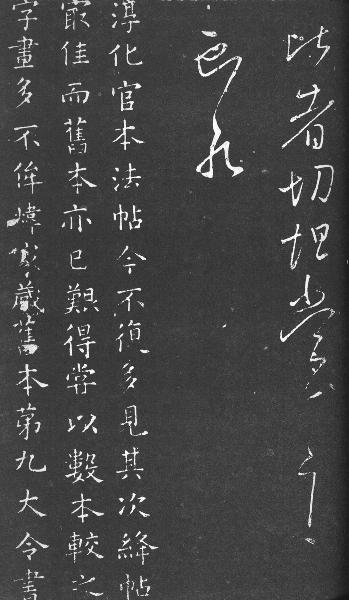 此者切坦
淳化官本法帖今不復多見其次絳帖
最佳而舊本亦已艱得嘗以數本較之
字畫多不侔煒家藏舊本第九大令書